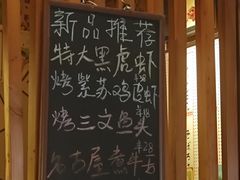 新品推荐
特大黑虎虾
烤紫苏鸡腿虾
烤三文鱼头
¥18
名古屋煮牛舌
¥28